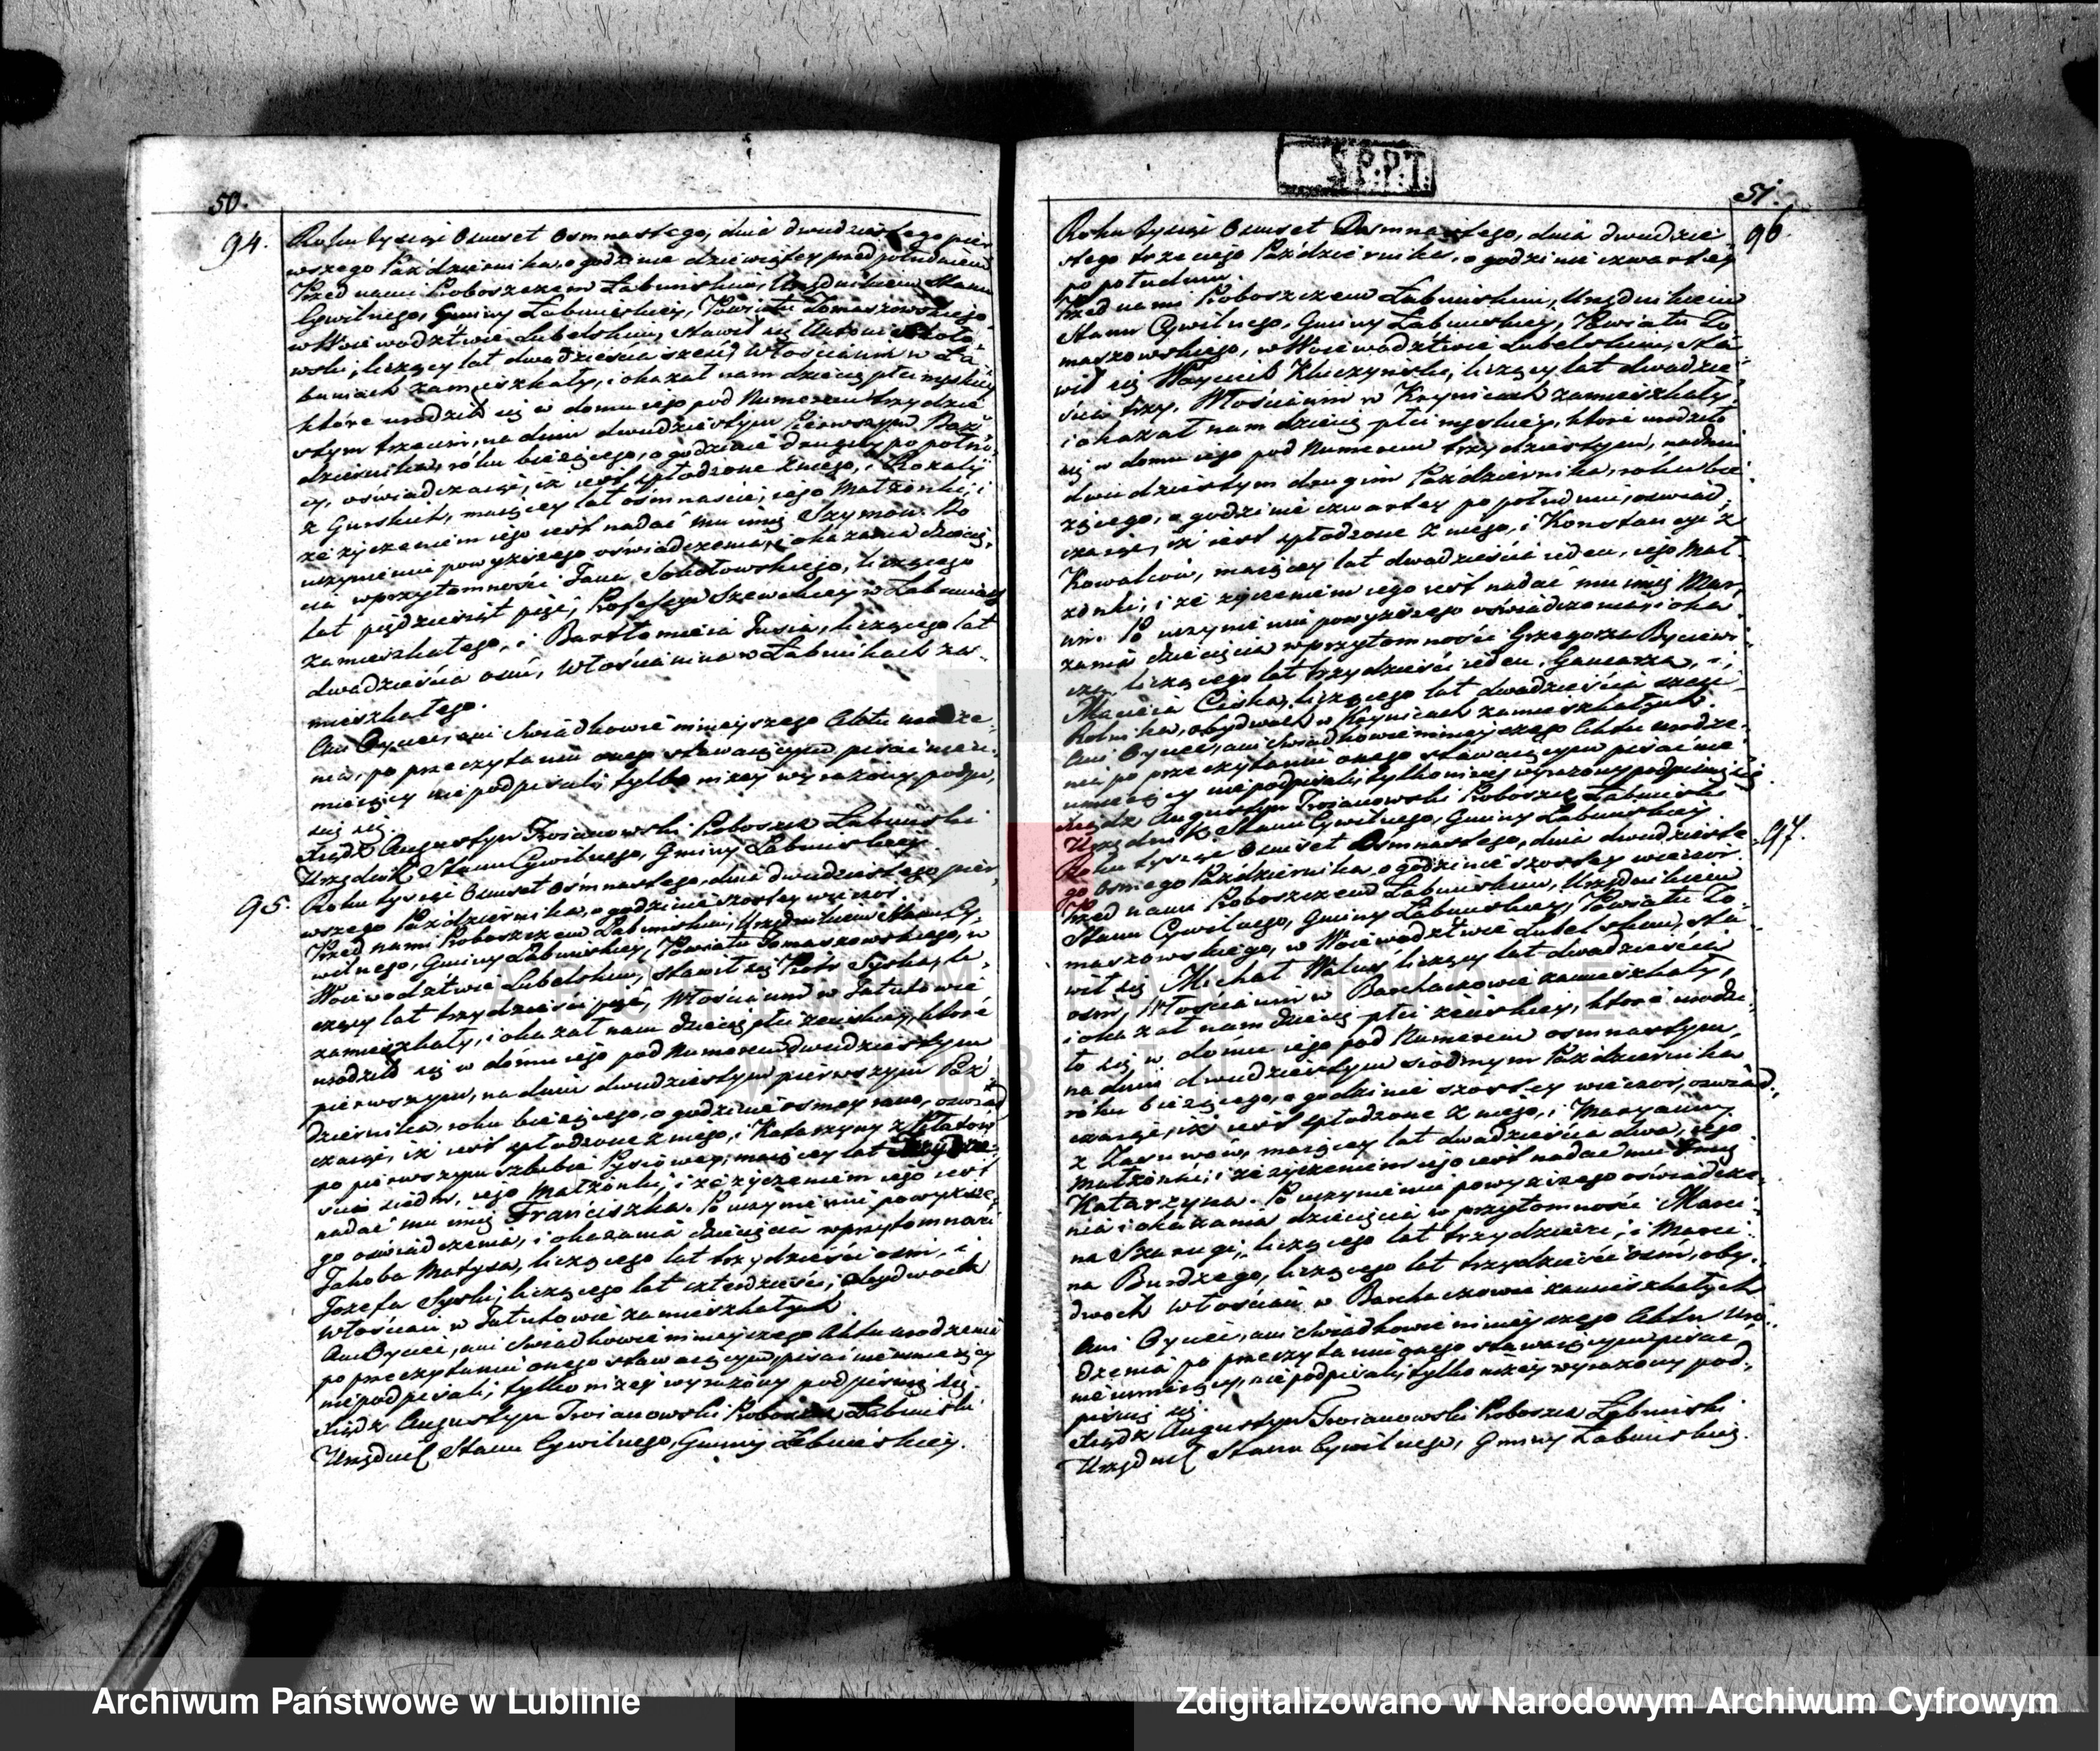 50.
94.
Roku tysiąc Osmset Osmnastego, dnia dwudziestego pier
wszego Października, o godzinie dziewiątey przed południem
Przed nami Proboszczem Łabuńskim, Urzędnikiem Stanu
Cywilnego, Gminy Łabuńskiey, Powiatu Tomaszowskiego
w Woiewodztwie Lubelskim, stawił się Antoni
wski, liczący lat dwadzieścia sześć, Włościanin w Ła
buniach zamieszkały, i okazał nam dziecię płci męskiey
które urodziło się w domu iego pod Numerem trzydzie
stym trzecim, na dniu dwudziestym Pierwszym Paź
dziernika, roku bieżącego, o godzinie drugiey po półno
cy, oświadczaiąc, iż iest spłodzone z niego, i Rozalij
z Gurskich, maiącey lat ośmnaście, iego Małżonki, i
że życzeniem iego iest nadać mu imię Szymon. Po
uczynieniu powyższego oświadczenia, i okazania dziecię
cia w przytomności Jana Sokołowskiego, liczącego
lat pięćdziesiąt pięć, Professyi Szewckiey w Łabuniach
zamieszkałego, i Bartłomieia Jusia, liczącego lat
dwadzieścia osm, Włościanina w Łabunikach za
mieszkałego.
Ani Oyciec, ani Swiadkowie ninieyszego Aktu urodze
nia, po przeczytaniu onego stawaiącym pisać nieu
mieiący nie podpisali, tylko niżey wyrażony podpi
suię się.
Xiądz Augustyn Troianowski Proboszcz Łabuński
Urzędnik Stanu Cywilnego, Gminy Łabuńskiey.
95.
Roku tysiąc Osmset Osmnastego, dnia dwudziestego pier
wszego Października, o godzinie szostey wieczor.
Przed nami Proboszczem Łabuńskim, Urzędnikiem Stanu Cy
wilnego, Gminy Łabuńskiey, Powiatu Tomaszowskiego, w
Woiewodztwie Lubelskim, stawił się Piotr Syska, li
czący lat trzydzieści pięć, Włościanin w Tatutowie
zamieszkały, i okazał nam dziecię płci żeńskiey, które
urodziło się w domu iego pod Numerem dwudziestym
pierwszym, na dniu dwudziestym pierwszym Paź
dziernika, roku bieżącego, o godzinie osmey rano, oświad
czaiąc, iż iest spłodzone z niego, i Katarzyny z
po pierwszym szlubie maiącey lat
ści siedm, iego Małżonki, i że życzeniem iego iest
nadać mu imię Franciszka. Po uczynieniu powyższe
go oświadczenia, i okazania dziecięcia w przytomności
Jakoba Matysa, liczącego lat trzydzieści osm, i
Jozefa Syski, liczącego lat czterdzieści, obydwoch
Włościan w Tatutowie zamieszkałych.
Ani Oyciec, ani Swiadkowie ninieyszego Aktu urodzenia
po przeczytaniu onego stawaiącym, pisać nieumieiący
niepodpisali, tylko niżey wyrażony podpisuię się.
Xiądz Augustyn Troianowski Proboszcz Łabuński
Urzędnik Stanu Cywilnego, Gminy Łabuńskiey.
51.
96.
Roku tysiąc Osmset Osmnastego, dnia dwudzie
stego trzeciego Października, o godzinie czwartey
po południu.
Przed nami Proboszczem Łabuńskim, Urzędnikiem
Stanu Cywilnego, Gminy Łabuńskiey, Powiatu To
maszowskiego, w Woiewodztwie Lubelskim, sta
wił się Woyciech Kluczyński, liczący lat dwadzie
ścia trzy, Włościanin w Krynicach zamieszkały,
i okazał nam dziecię płci męskiey, które urodziło
się w domu iego pod Numerem trzydziestym, na dniu
dwudziestym drugim Października, roku bie
żącego, o godzinie czwartey po południu, oświad
czaiąc, iż iest spłodzone z niego, i Konstancyi z
Kowalców, maiącey lat dwadzieścia ieden, iego Mał
żonki, i że życzeniem iego iest nadać mu imię Mar
cin. Po uczynieniu powyższego oświadczenia, i oka
zania dziecięcia w przytomności Grzegorza
liczącego lat trzydzieści ieden, Garncarza, i
Macieia Ciska, liczącego lat dwadzieścia sześć
Rolnika, obydwoch w Krynicach zamieszkałych.
Ani Oyciec, ani Swiadkowie ninieyszego Aktu urodze
nia po przeczytaniu onego stawaiącym pisać nie
umieiący niepodpisali, tylko niżey wyrażony podpisuię się
Xiądz Augustyn Troianowski Proboszcz Łabuński
Urzędnik Stanu Cywilnego, Gminy Łabuńskiey
97.
Roku tysiąc Osmset Osmnastego, dnia dwudzieste
go osmego Października, o godzinie szostey wieczor.
Przed nami Proboszczem Łabuńskim, Urzędnikiem
Stanu Cywilnego, Gminy Łabuńskiey, Powiatu To
maszowskiego, w Woiewodztwie Lubelskim, sta
wił się Michał Waluś, liczący lat dwadzieścia
osm, Włościanin w Barchaczowie zamieszkały,
i okazał nam dziecię płci żeńskiey, które urodzi
ło się w domu iego pod Numerem osmnastym,
na dniu dwudziestym siódmym Października
roku bieżącego, o godzinie szostey wieczor, oświad
czaiąc, iż iest spłodzone z niego, i Maryanny
z maiącey lat dwadzieścia dwa, iego
Małżonki, i że życzeniem iego iest nadać mu Imię
Katarzyna. Po uczynieniu powyższego oświadcze
nia i okazania dziecięcia w przytomności Marci
na Szarugi, liczącego lat trzydzieści, i Marci
na Burdzego, liczącego lat trzydzieści osm, oby
dwoch Włościan w Barchaczowie zamieszkałych
Ani Oyciec, ani Swiadkowie ninieyszego Aktu Uro
dzenia po przeczytaniu onego stawaiącym pisać
nieumieiący, niepodpisali, tylko niżey wyrażony pod
pisuię się.
Xiądz Augustyn Troianowski Proboszcz Łabuński
Urzędnik Stanu Cywilnego, Gminy Łabuńskiey.
ARCHIWUM PAŃSTWOWE
W LUBLINIE
Archiwum Państwowe w Lublinie
Zdigitalizowano w Narodowym Archiwum Cyfrowym